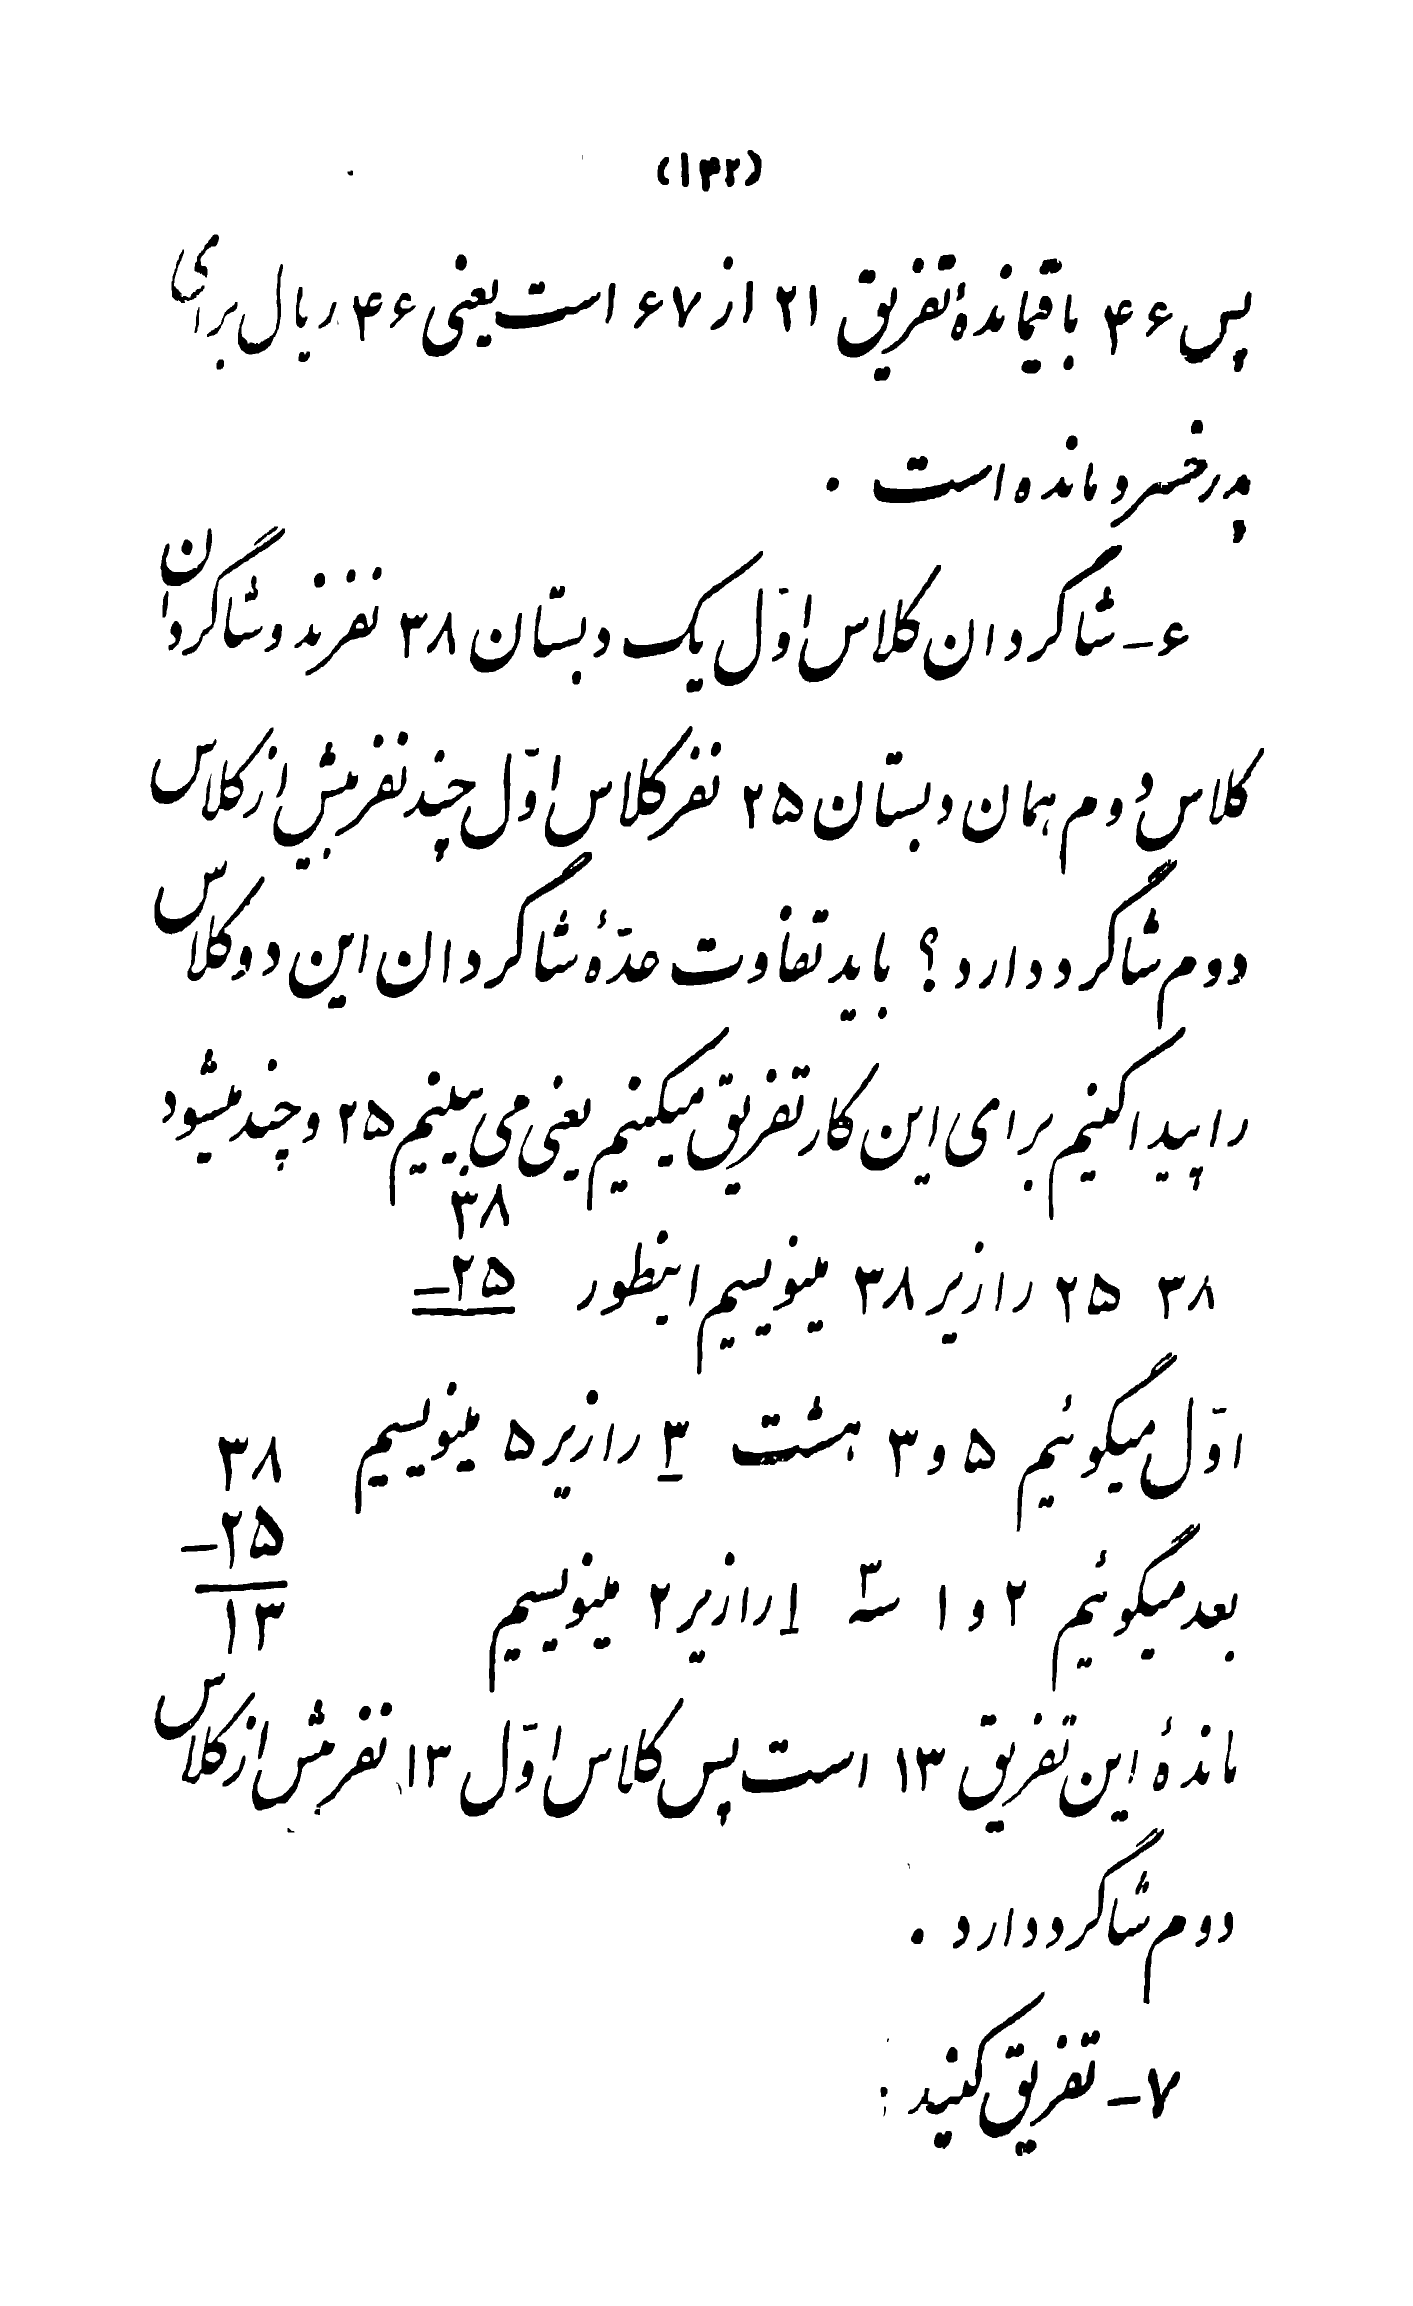 (۱۳۲)
پس ۴۶ باقیماندهٔ تفریق ۲۱ از ۶۷ است یعنی ۴۶ ریال برای
پدر خسرو مانده است .
۶- شاگردان کلاس اوّل یک دبستان ۳۸ نفرند و شاگردان
کلاس دوم همان دبستان ۲۵ نفر کلاس اوّل چند نفر بیش از کلاس
دوم شاگرد دارد ؟ باید تفاوت عدّهٔ شاگردان این دو کلاس
را پیدا کنیم برای این کار تفریق میکنیم یعنی می بینیم ۲۵ و چند میشود
۳۸ ۲۵ را زیر ۳۸ مینویسیم اینطور
۳۸
۲۵-
اوّل میگوئیم ۵ و ۳ هشت ۳ را زیر ۵ مینویسیم
بعد میگوئیم ۲ و ۱ سه ۱ را زیر ۲ مینویسیم
۳۸
۲۵-
۱۳
ماندهٔ این تفریق ۱۳ است پس کلاس اوّل ۱۳ نفر بیش از کلاس
دوم شاگرد دارد .
۷- تفریق کنید :